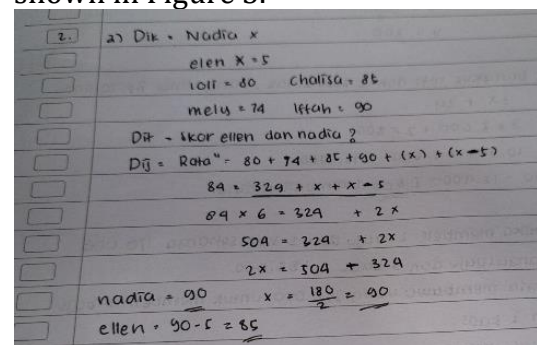 shown in Figure 3.
2. a) Dik = Nadia x
elen x - 5
loli = 80 Chalisa = 85
mely = 74 Iffah = 90
Dit = Skor ellen dan nadia ?
Dij = Rata" = 80 + 74 + 85 + 90 + (x) + (x - 5)
84 = 329 + x + x - 5
84 x 6 = 324 + 2x
504 = 324 + 2x
2x = 504 + 324
nadia = 90 x = 180/2 = 90
ellen = 90 - 5 = 85